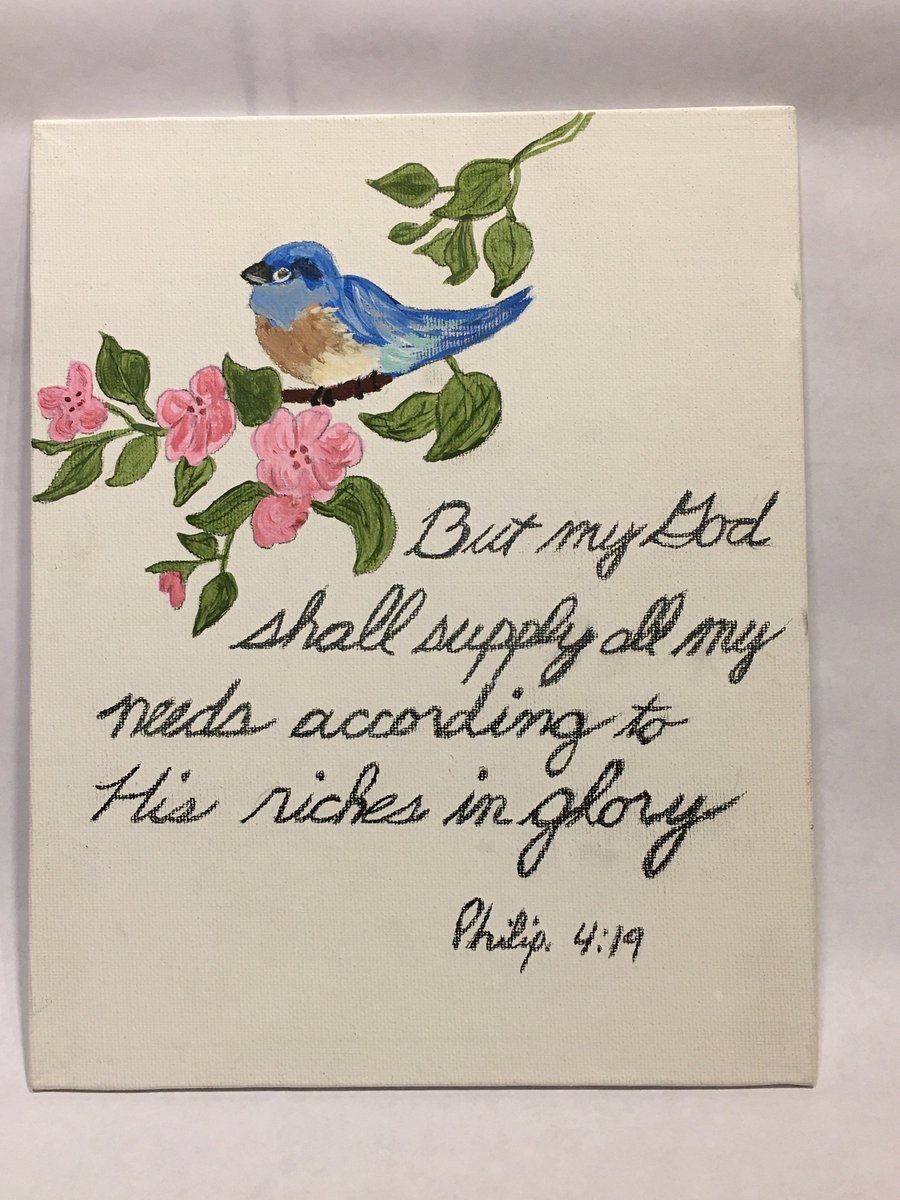 But my God
shall supply all my
needs according to
His riches in glory
Philip. 4:19